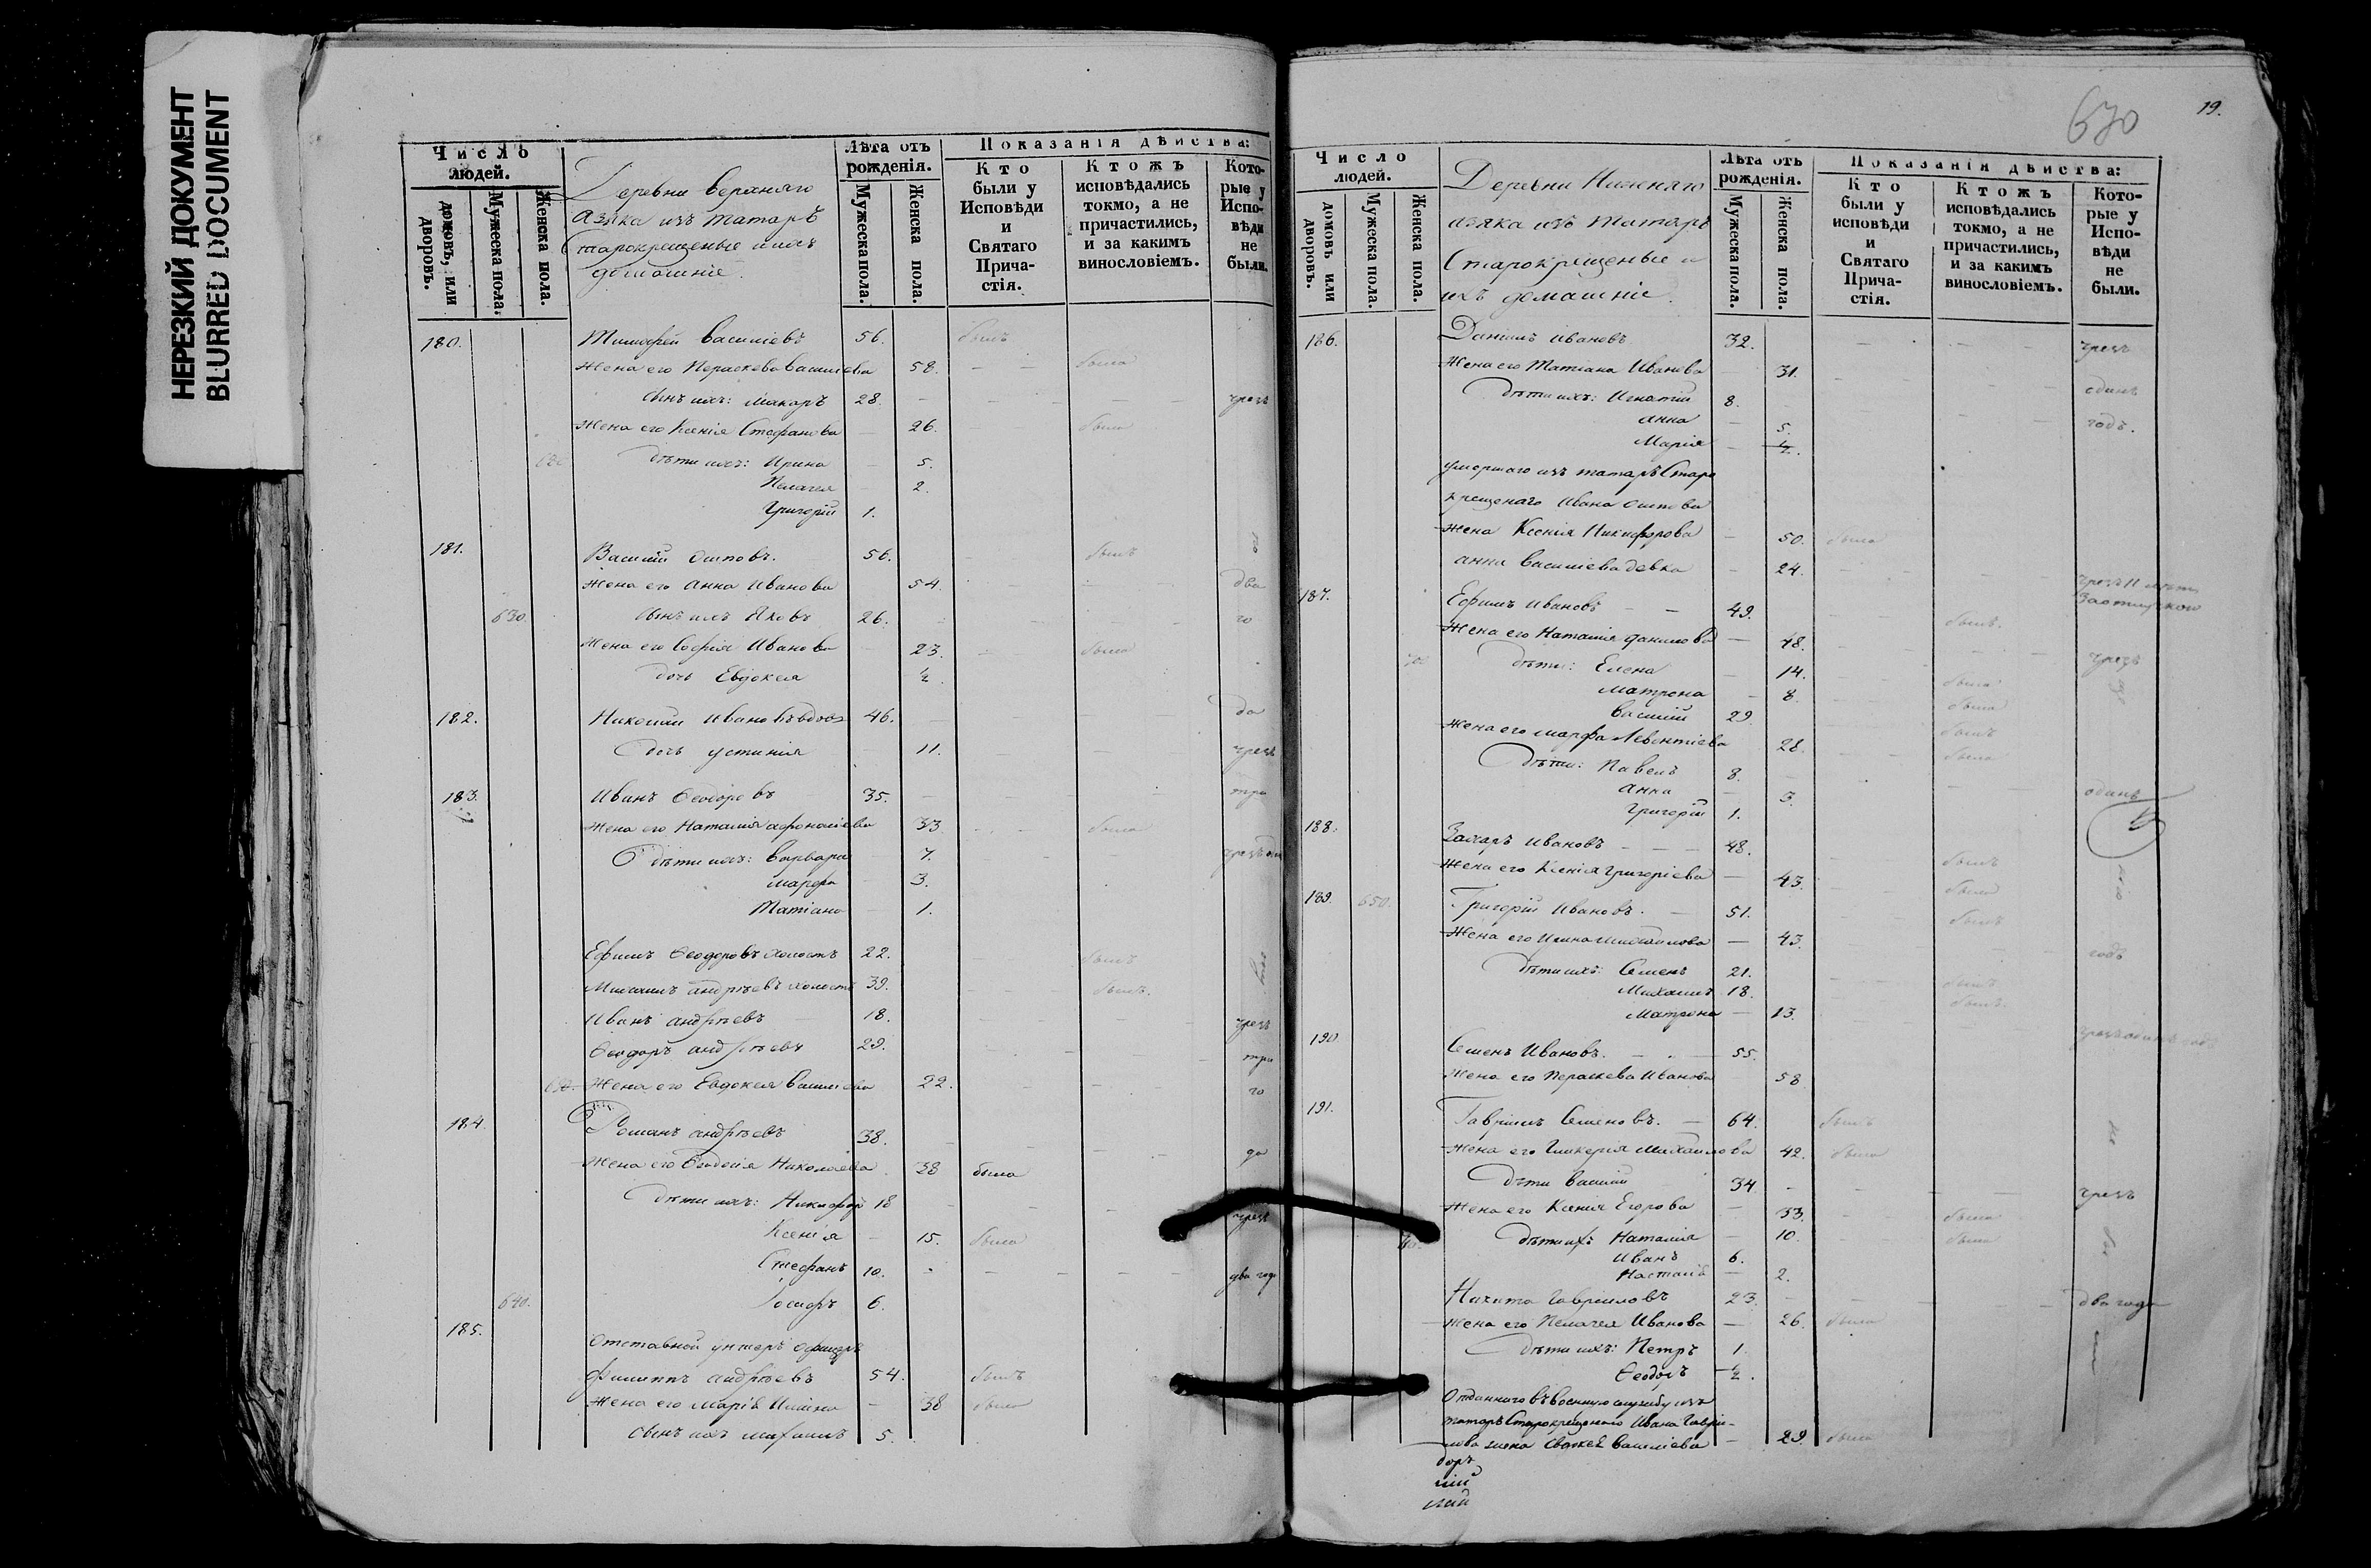 НЕРЕЗКИЙ ДОКУМЕНТ
BLURRED DOCUMENT
Число людей.
домовъ, или дворовъ.
Мужеска пола.
Женска пола.
Деревни Верхняго
Азяка изъ татаръ
Старокрещеные и ихъ
домашніе.
Лѣта отъ рожденія.
Мужеска пола.
Женска пола.
Показанія дѣйства:
Кто были у Исповѣди и Святаго Причастія.
Ктожъ исповѣдались токмо, а не причастились, и за какимъ винословіемъ.
Которые у Исповѣди не были.
180. Тимофей Васильевъ 56. былъ
Жена его Параскева Васильева 58. была
сынъ ихъ: Макаръ 28. чрезъ
Жена его Ксенія Стефанова 26. была
дѣти ихъ: Ирина 5.
Пелагея 2.
Григорій 1.
181. Василій Осиповъ. 56. былъ
Жена его Анна Иванова 54. два
630. сынъ ихъ Яковъ 26. го
Жена его Софія Иванова 23. была
дочь Евдокея ½
182. Николай Ивановъ вдовъ 46. да
дочь Устинія 11. чрезъ
183. Иванъ Ѳеодоровъ 35. три
Жена его Наталія Афонасіева 33 была
дѣти ихъ: Варвара 7. чрезъ
Марфа 3.
Татіана 1.
Ефимъ Ѳеодоровъ холостъ 22. былъ
Михаилъ Андрѣевъ холостъ 39. былъ.
Иванъ Андрѣевъ 18. чрезъ
Ѳеодоръ Андрѣевъ 29. три
Жена его Евдокея Васильева 22. го
184. Романъ Андрѣевъ 38. да
Жена его Ѳеодосія Николаева 38 была
дѣти ихъ: Никифоръ 18 чрезъ
Ксенія 15. была
Стефанъ 10. два года
640. Іосифъ 6.
185. Отставной унтеръ офицеръ
Филиппъ Андрѣевъ 54. былъ
Жена его Марія 38 была
сынъ ихъ 5.
670
19.
Число людей.
домовъ или дворовъ.
Мужеска пола.
Женска пола.
Деревни Нижняго
Азяка изъ татаръ
Старокрещеные и
ихъ домашніе.
Лѣта отъ рожденія.
Мужеска пола.
Женска пола.
Показанія дѣйства:
Кто были у исповѣди и Святаго Причастія.
Ктожъ исповѣдались токмо, а не причастились, и за какимъ винословіемъ.
Которые у Исповѣди не были.
186. Даніилъ Ивановъ 32. чрезъ
Жена его Татіана Иванова 31. одинъ
дѣти ихъ: Игнатій 8.
Анна 5. годъ.
Марія ½.
умершаго изъ татаръ Старо
крещенаго Ивана Осипова
Жена Ксенія Никифорова 50. была
Анна Васильева девка 24.
187. Ефимъ Ивановъ 49. былъ.
Жена его Наталія Данилова 48. чрезъ
дѣти: Елена 14. была
Матрона 8. была
Василій 29. былъ
Жена его Марфа Леонтіева 28. была
дѣти: Павелъ 8. одинъ
Анна 3.
Григорій 1.
188. Захаръ Ивановъ 48. былъ
Жена его Ксенія Григоріева 43. была
189. 650. Григорій Ивановъ. 51. былъ
Жена его Ирина 43. годъ
дѣти ихъ: Семенъ 21. былъ
Михаилъ 18. былъ.
Матрона 13.
190. Семенъ Ивановъ. 55. чрезъ одинъ годъ
Жена его Параскева Иванова 58
191. Гавріилъ Семеновъ. 64. былъ
Жена его Гликерія Михаилова 42. была
дѣти Василій 34 чрезъ
Жена его Ксенія Егорова 33. была
дѣти ихъ Наталія 10. была
Иванъ 6.
Настасія 2.
Никита Гавриловъ 23. два года
Жена его Пелагея Иванова 26. была
дѣти ихъ: Петръ 1
Ѳеодоръ ½.
Отданнаго въ военную службу изъ
татаръ Старокрещенаго Ивана Гаври-
лова жена Васильева 29. была